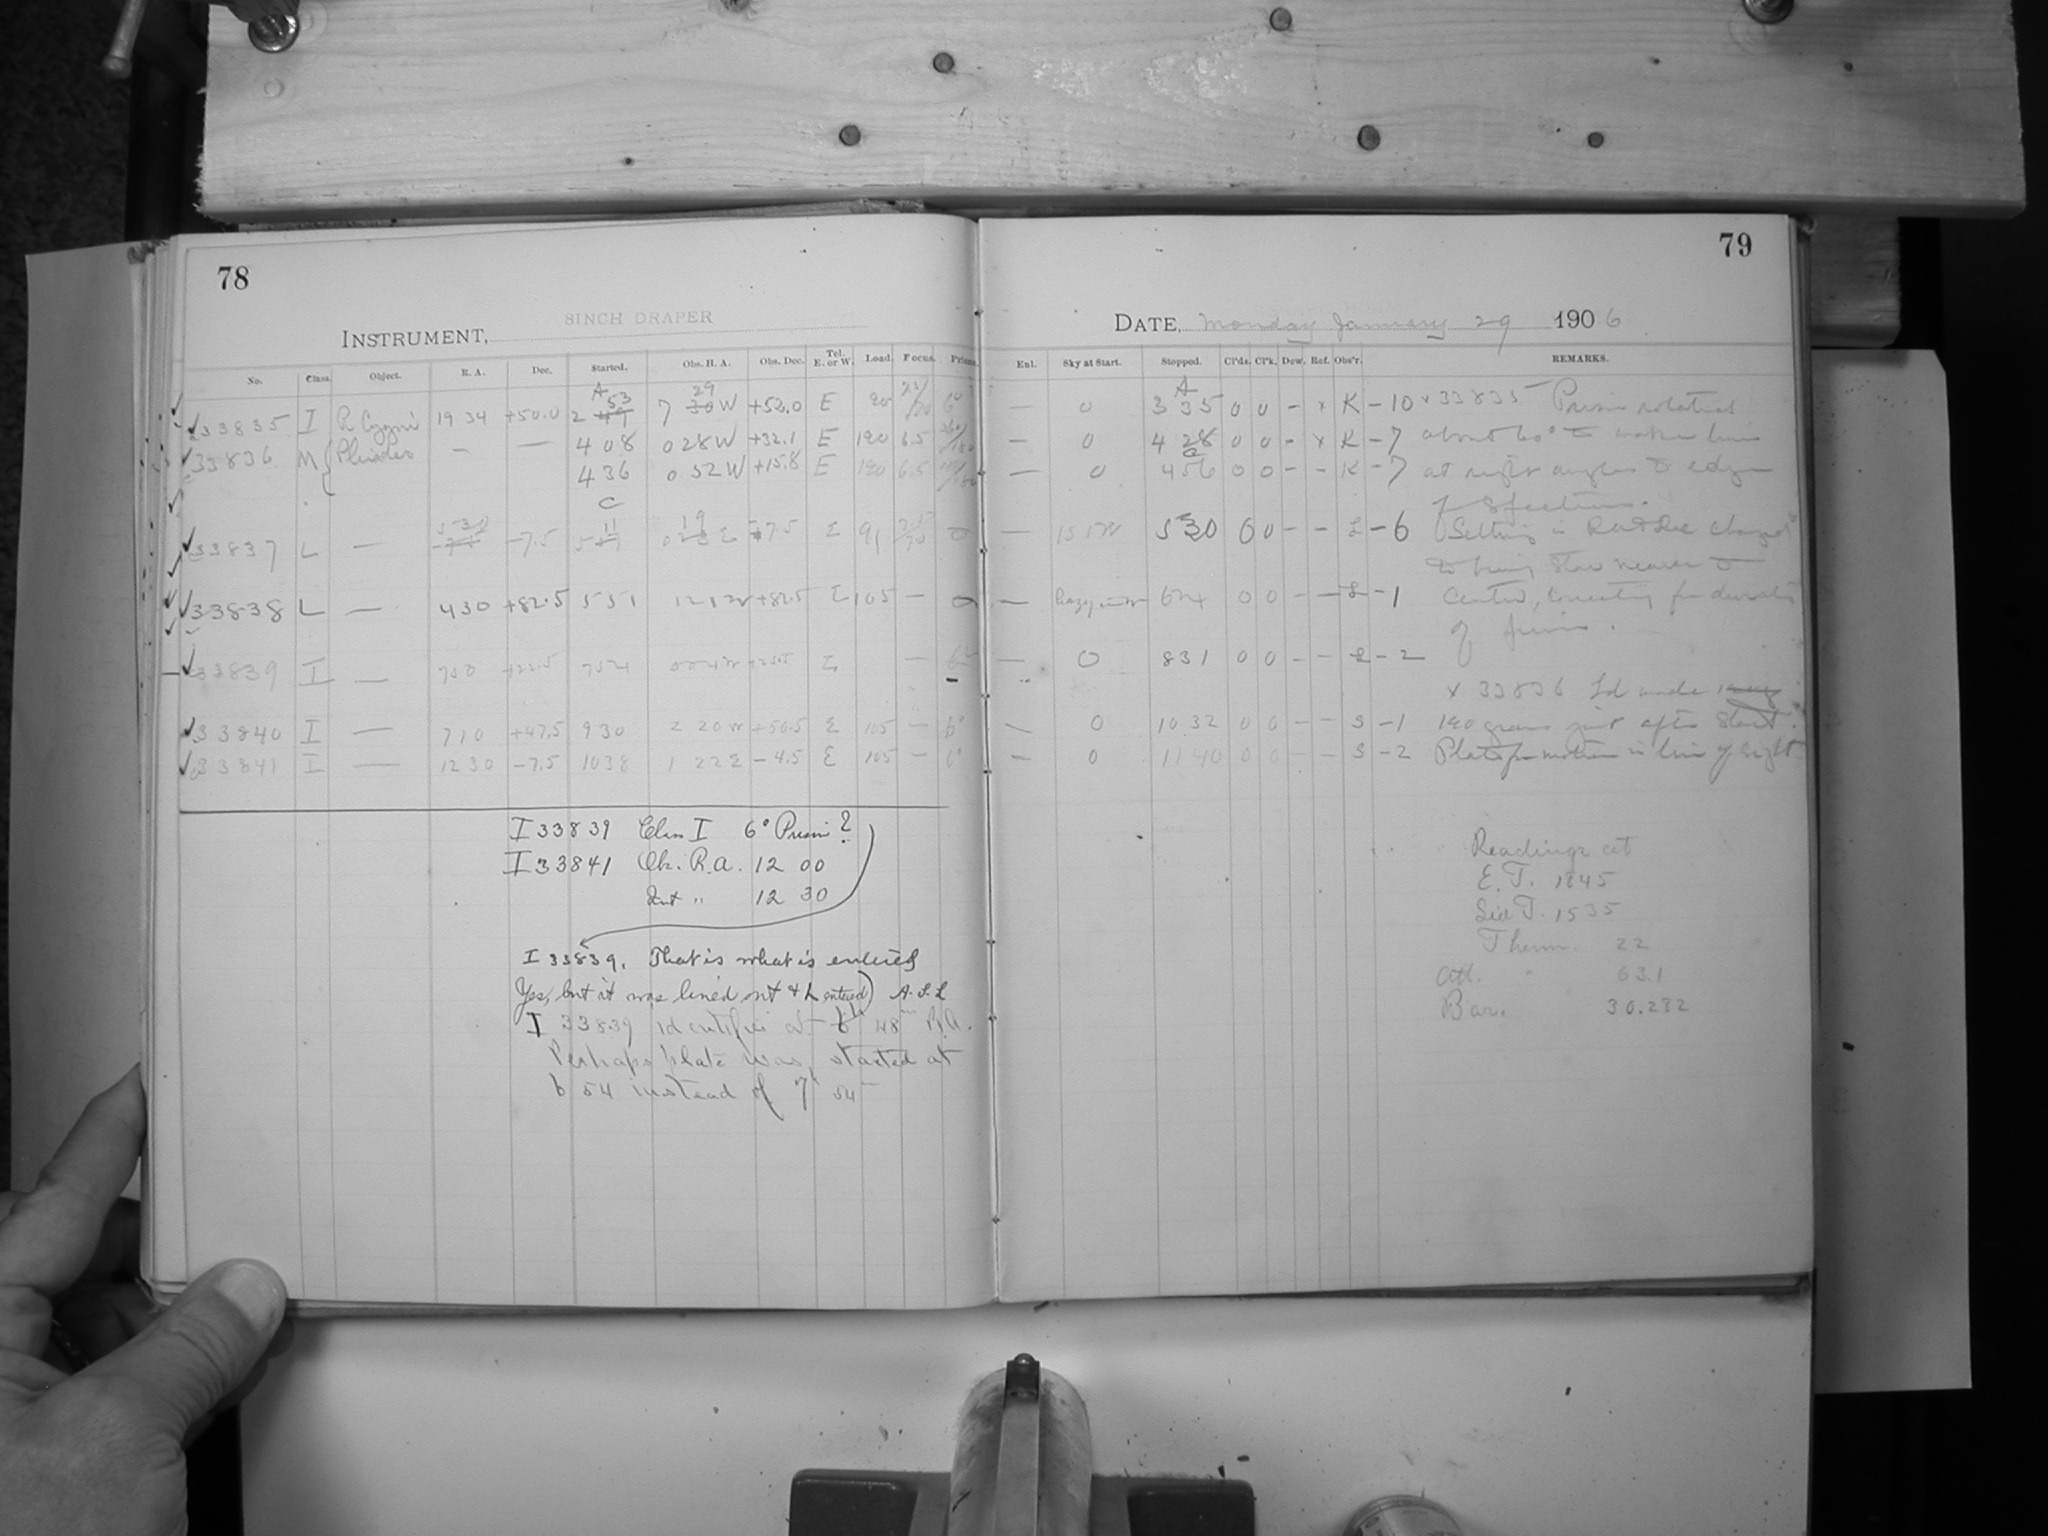 78
INSTRUMENT, 8INCH DRAPER
No. Class. Object. R. A. Dec. Started. Obs. H. A. Obs. Dec. Tel. E. or W. Load. Focus. Prism.
A 53 29
33835 I R Cygni 19 34 +50.0 2 49 7 30 W +52.0 E 90
33836 M Pleiades — — 4 08 0 28 W +32.1 E 190 6.5
4 36 0 52 W +15.8 E 190 6.5
C
33837 L — -7.5 E 91
33838 L — 4 30 +82.5 5 51 1 21 W +82.5 E 105 — 0
33839 I — 7 50 +22.5 7 54 0 04 W E —
33840 I — 7 10 +47.5 9 30 2 20 W +50.5 E 105 — 6°
33841 I — 12 30 -7.5 10 38 1 22 E -4.5 E 105 — 6°
I 33839 Class I 6° Prism?
I 33841 Ob. R.A. 12 00
" 12 30
I 33839. That is what is entered
Yes, but it was lined out & L entered) A.S.L
I 33839 identifies at 6h 48m R.A.
Perhaps plate was started at
6 54 instead of 7h 54m
79
DATE, Monday January 29 1906
Enl. Sky at Start. Stopped. Cl'ds. Cl'k. Dew. Ref. Obs'r. REMARKS.
A
— 0 3 35 0 0 - x K - 10 x 33835 Prism rotated
— 0 4 28 0 0 - x K - 7 about 60° to make lines
— 0 4 56 0 0 - - K - 7 at right angles to edge
of Spectrum.
— 5 30 0 0 - - L - 6 Setting in RA & Dec changed
to bring star nearer to
— 0 0 - - L - 1 Center, correcting for deviation
of prism.
— 0 8 31 0 0 - - L - 2
x 33836 Ld under
— 0 10 32 0 0 - - S - 1 190 grams just after Start.
— 0 11 40 0 0 - - S - 2 Plate for motion in line of sight
Readings at
E. T. 1845
Sid T. 1535
Therm. 22
Att. " 63.1
Bar. 30.282